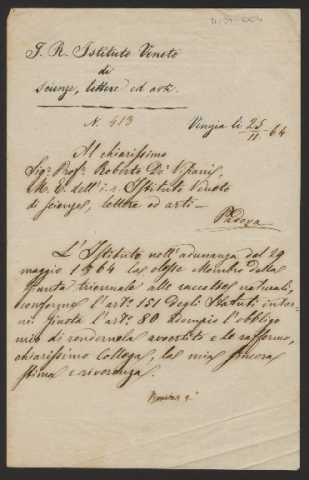 I. R. Istituto Veneto
di
scienze, lettere ed arti.
N. 413
Venezia li 25/11 64
Al chiarissimo
Sig. Prof. Roberto De' Visiani,
M. E. dell'i. r. Istituto Veneto
di scienze, lettere ed arti —
Padova
L'Istituto nell'adunanza del 29
maggio 1864 la elesse Membro della
Giunta triennale alle raccolte naturali,
conforme l'art.º 151 degli Statuti inter-
ni giusta l'art.º 80 adempio l'obbligo
mio di rendernela avvertito e le raffermo,
chiarissimo Collega, la mia sincera
stima e riverenza.